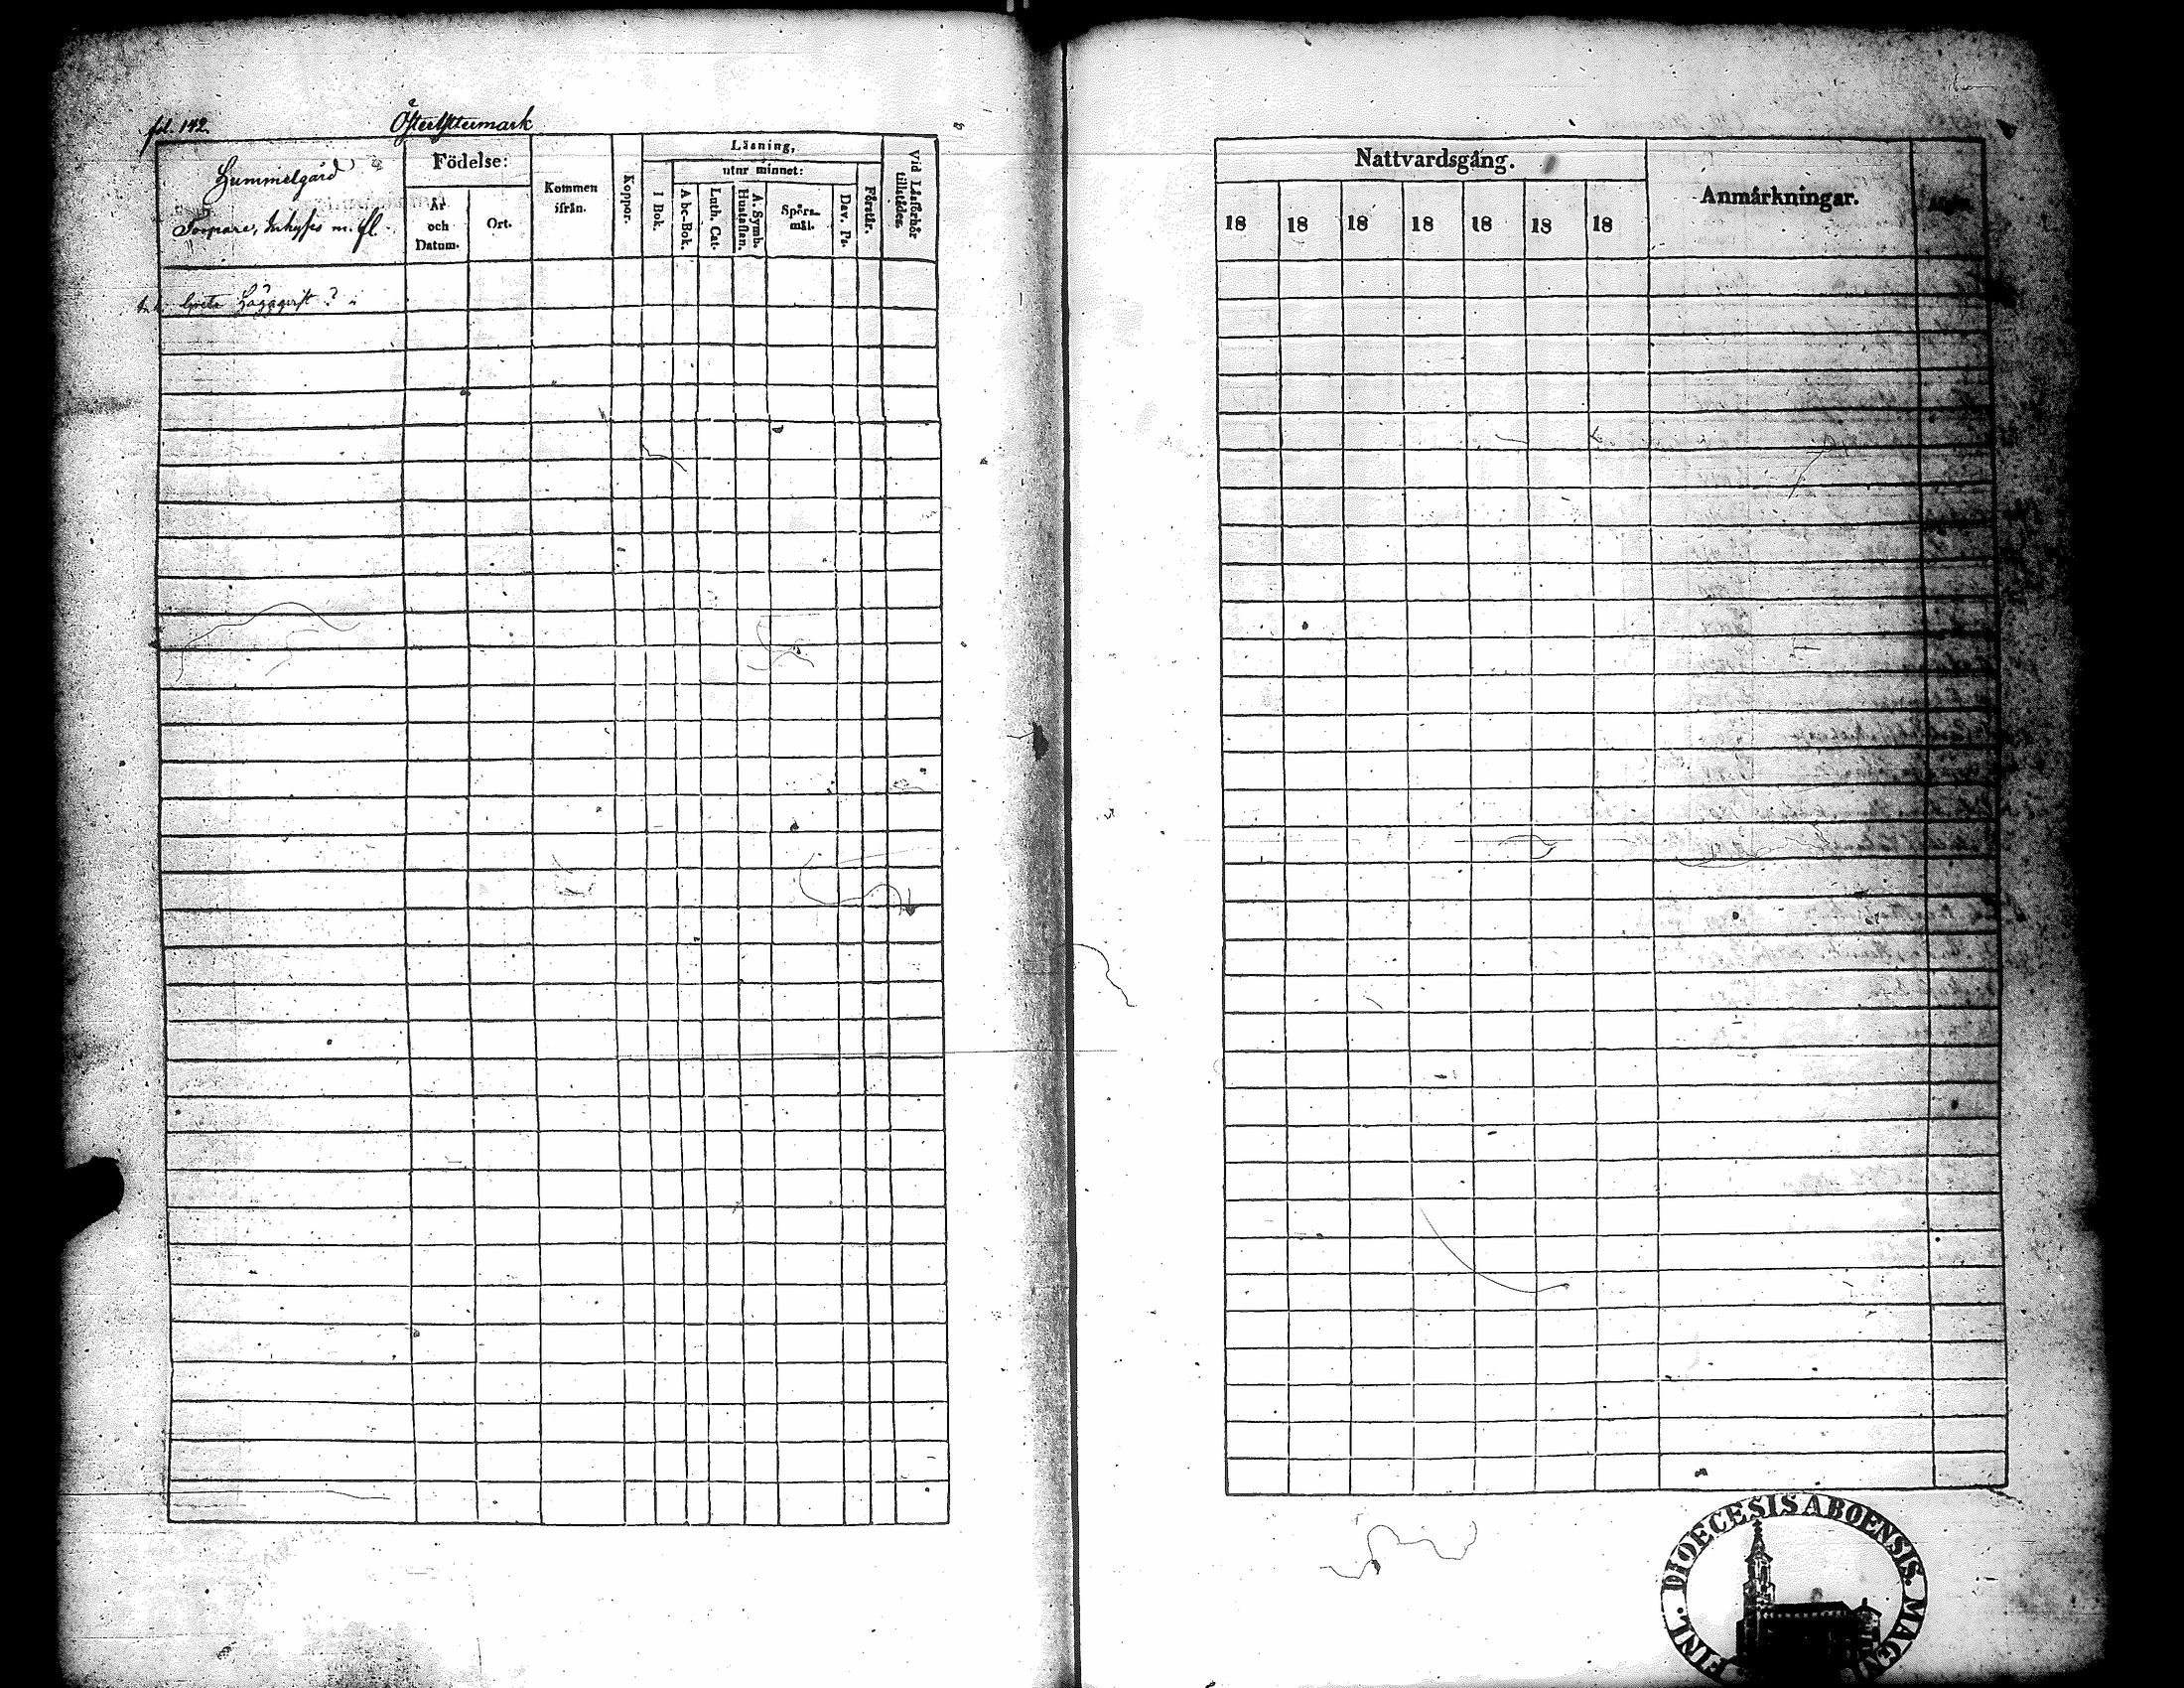 fol. 142.
ÖfterYttermark
Hummelgård
Torpare, Inhyses m. fl.
Födelse:
År och Datum.
Ort.
Kommen ifrån.
Koppor.
Läsning,
utur minnet:
I Bok.
Abc-Bok.
Luth. Cat.
A. Symb. Hustaflan.
Spörsmål.
Dav. Ps.
Förstår.
Vid Läsförhör tillstädes.
Häggqvist ?
Nattvardsgång.
18 18 18 18 18 18 18
Anmärkningar.
FINL. DIOECESIS ABOENSIS. MAGNI